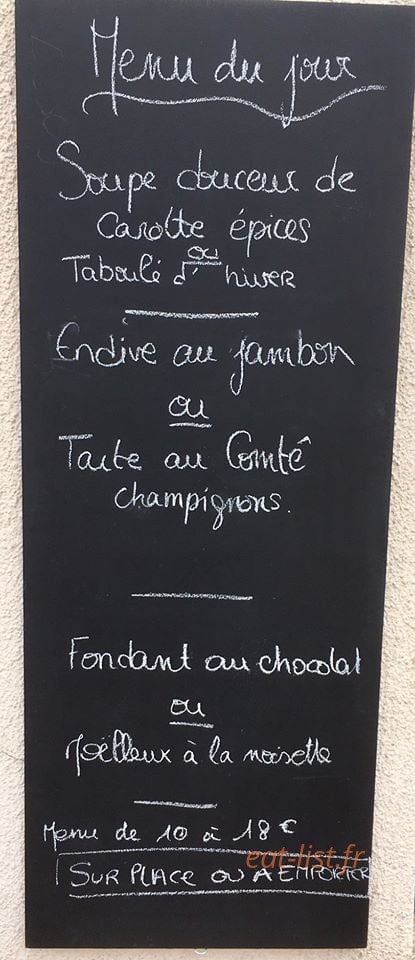 Menu du jour
Soupe douceur de
Carotte épices
ou
Taboulé d'hiver
Endive au jambon
ou
Tarte au Comté
champignons.
Fondant au chocolat
ou
Moëlleux à la noisette
Menu de 10 à 18 €
eat-list.fr
SUR PLACE OU A EMPORTER